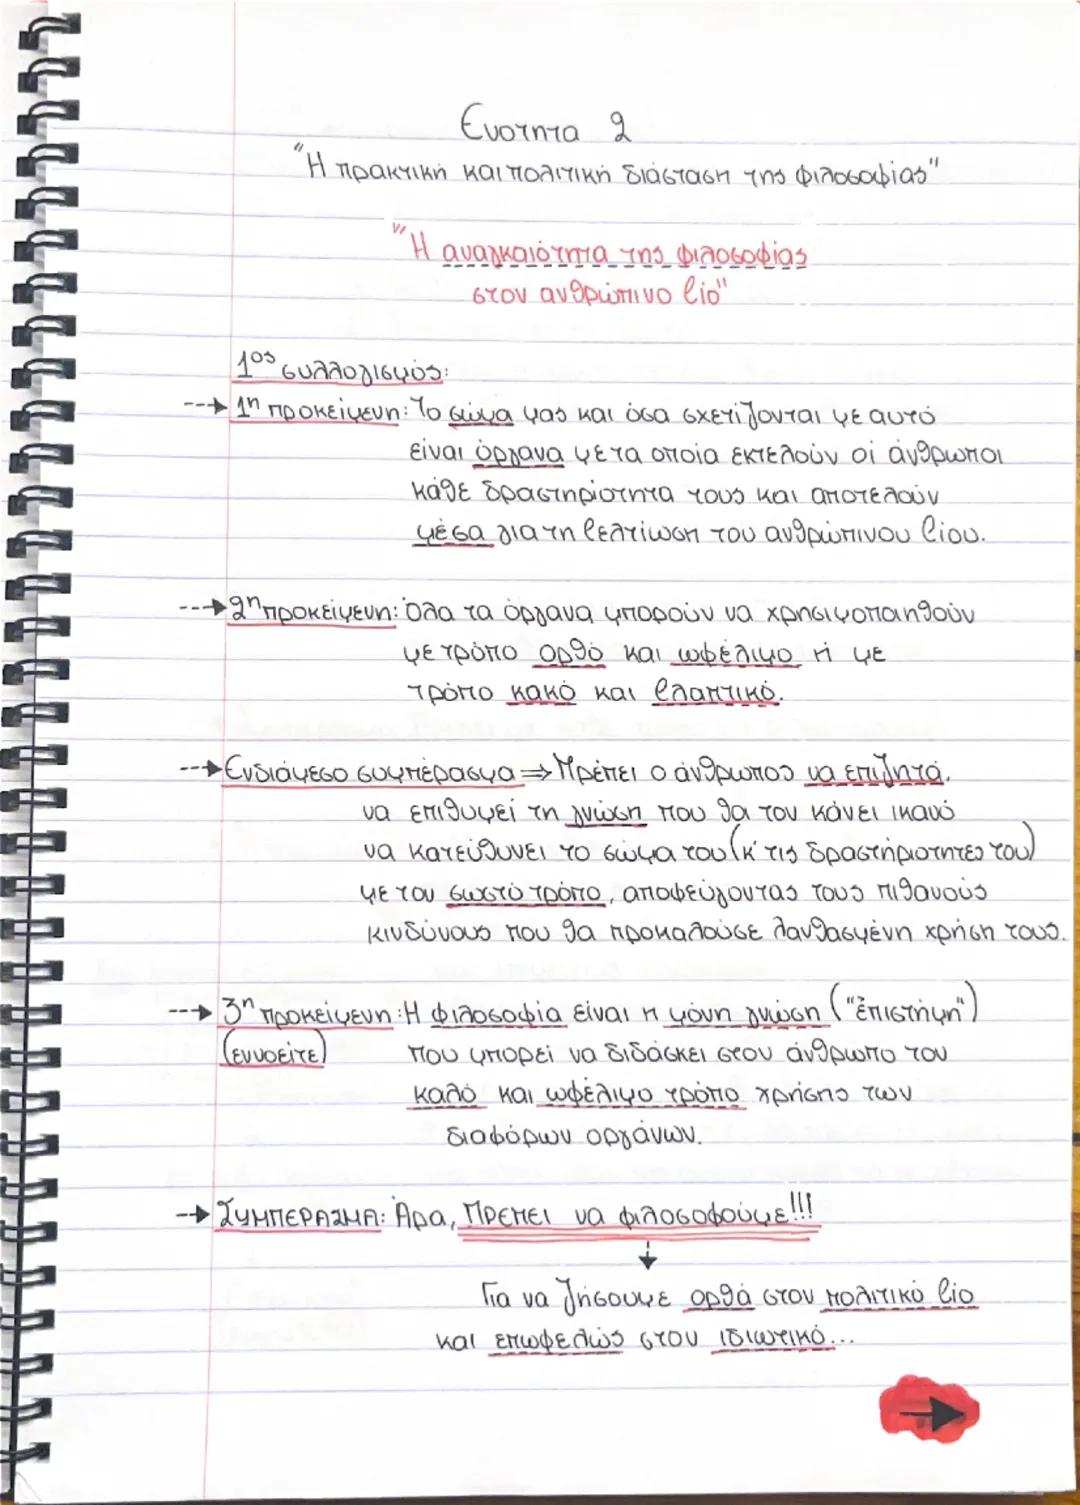 Ενότητα 2
"Η πρακτική και πολιτική διάσταση της φιλοσοφίας"
"Η αναγκαιότητα της φιλοσοφίας
στον ανθρώπινο βίο"
1ος συλλογισμός:
--→ 1η προκείμενη: Το σώμα μας και όσα σχετίζονται με αυτό
είναι όργανα με τα οποία εκτελούν οι άνθρωποι
κάθε δραστηριότητα τους και αποτελούν
μέσα για τη βελτίωση του ανθρώπινου βίου.
--→ 2η προκείμενη: Όλα τα όργανα μπορούν να χρησιμοποιηθούν
με τρόπο ορθό και ωφέλιμο ή με
τρόπο κακό και βλαπτικό.
--→ Ενδιάμεσο συμπέρασμα ⇒ Πρέπει ο άνθρωπος να επιζητά,
να επιθυμεί τη γνώση που θα τον κάνει ικανό
να κατευθύνει το σώμα του (κ' τις δραστηριότητες του)
με τον σωστό τρόπο, αποφεύγοντας τους πιθανούς
κινδύνους που θα προκαλούσε λανθασμένη χρήση τους.
--→ 3η προκείμενη: Η φιλοσοφία είναι η μόνη γνώση ("ἐπιστήμη")
(εννοείτε) που μπορεί να διδάσκει στον άνθρωπο τον
καλό και ωφέλιμο τρόπο χρήσης των
διαφόρων οργάνων.
--→ ΣΥΜΠΕΡΑΣΜΑ: Άρα, Πρέπει να φιλοσοφούμε!!!
Για να ζήσουμε ορθά στον πολιτικό βίο
και επωφελώς στον ιδιωτικό...